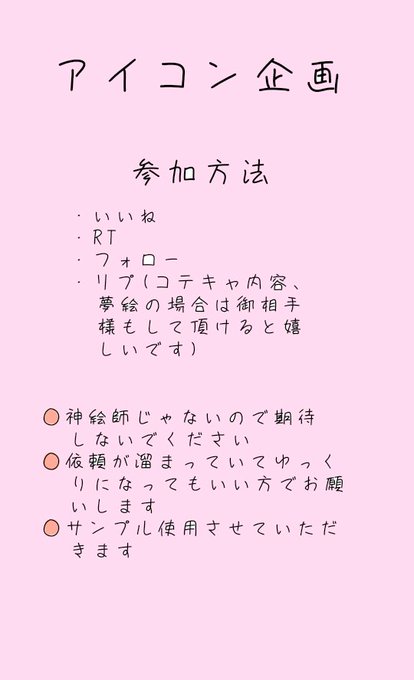 アイコン企画
参加方法
・いいね
・RT
・フォロー
・リプ(コテキャ内容、
夢絵の場合は御相手
様もして頂けると嬉
しいです)
神絵師じゃないので期待
しないでください
依頼が溜まっていてゆっく
りになってもいい方でお願
いします
サンプル使用させていただ
きます